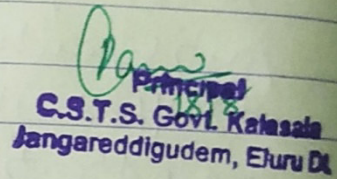 Principal
C.S.T.S. Govt. Kalasala
Jangareddigudem, Eluru Dt